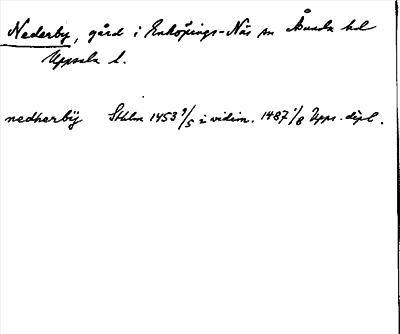 Nederby, gård i Enköpings-Näs sn Åsunda hd
Uppsala l.
nedherbÿ Sthlm 1453 9/5 i vidim. 1487 1/8 Upps. dipl.